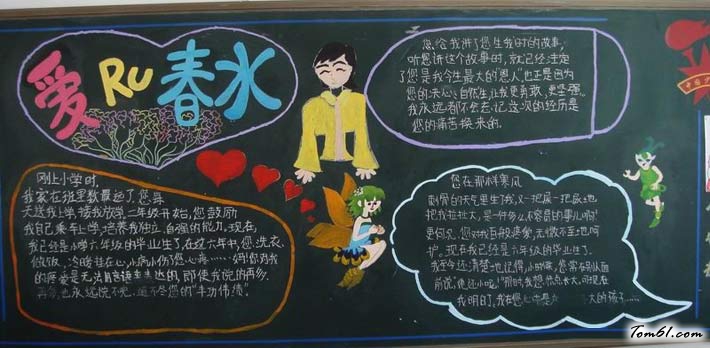 爱 RU 春水
您给我讲了您生我时的故事,
听您讲这个故事时,就已经注定
了您是我今生最大的"恩人"也正是因为
您的
让我更勇敢、更坚强。
我永远都不会忘记这次的经历是
您的痛苦换来的。
刚上小学时,
我家在班里数最远了,您每
天送我上学,接我放学,二年级开始,您鼓励
我自己乘车上学,培养我独立、自强的能力。现在,
我已经是小学六年级的毕业生了,在这六年中,您洗衣、
做饭、冷暖挂在心,小病小伤了您心疼……妈!您对我
的疼爱是无法用言语来表达的,即使我说的再多,
再多也永远说不完,道不尽您的"丰功伟绩"。
您在那样寒风
刺骨的天气里生了我,又一把屎一把尿地
把我拉扯大,是一件多么不容易的事儿啊!
更何况,您对我百般疼爱,无微不至地呵
护。现在我已经是六年级的毕业生了。
我至今还清楚地记得,小时候,您常
我明白了,我在您心中是
大的孩子……
Tom61.com